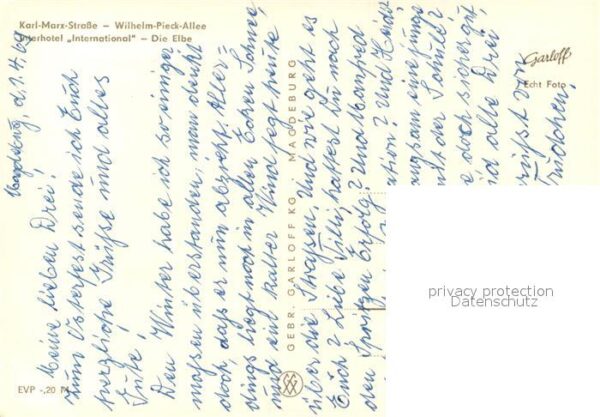 Karl-Marx-Straße – Wilhelm-Pieck-Allee
Interhotel „International" – Die Elbe
Garloff
Echt Foto
GEBR. GARLOFF KG, MAGDEBURG
EVP -,20 M
privacy protection
Datenschutz
Magdeburg, d. 1.4.69
Meine lieben Drei!
Zum Osterfest sende ich Euch
herzliche Grüße und alles
Gute!
Den Winter habe ich so einiger-
massen überstanden, man denkt
doch, dass er nun abzieht. Aller-
dings liegt noch in allen Ecken Schnee
und ein kalter Wind fegt heute
über die Strassen. Und wie geht es
Euch? Liebe Lilli, hattest Du nach
den Spritzen Erfolg? Und Manfred
Und Heidi
langsam eine junge
mit der Schule?
doch sicher gut,
alle Drei
grüßt von
Trudchen.